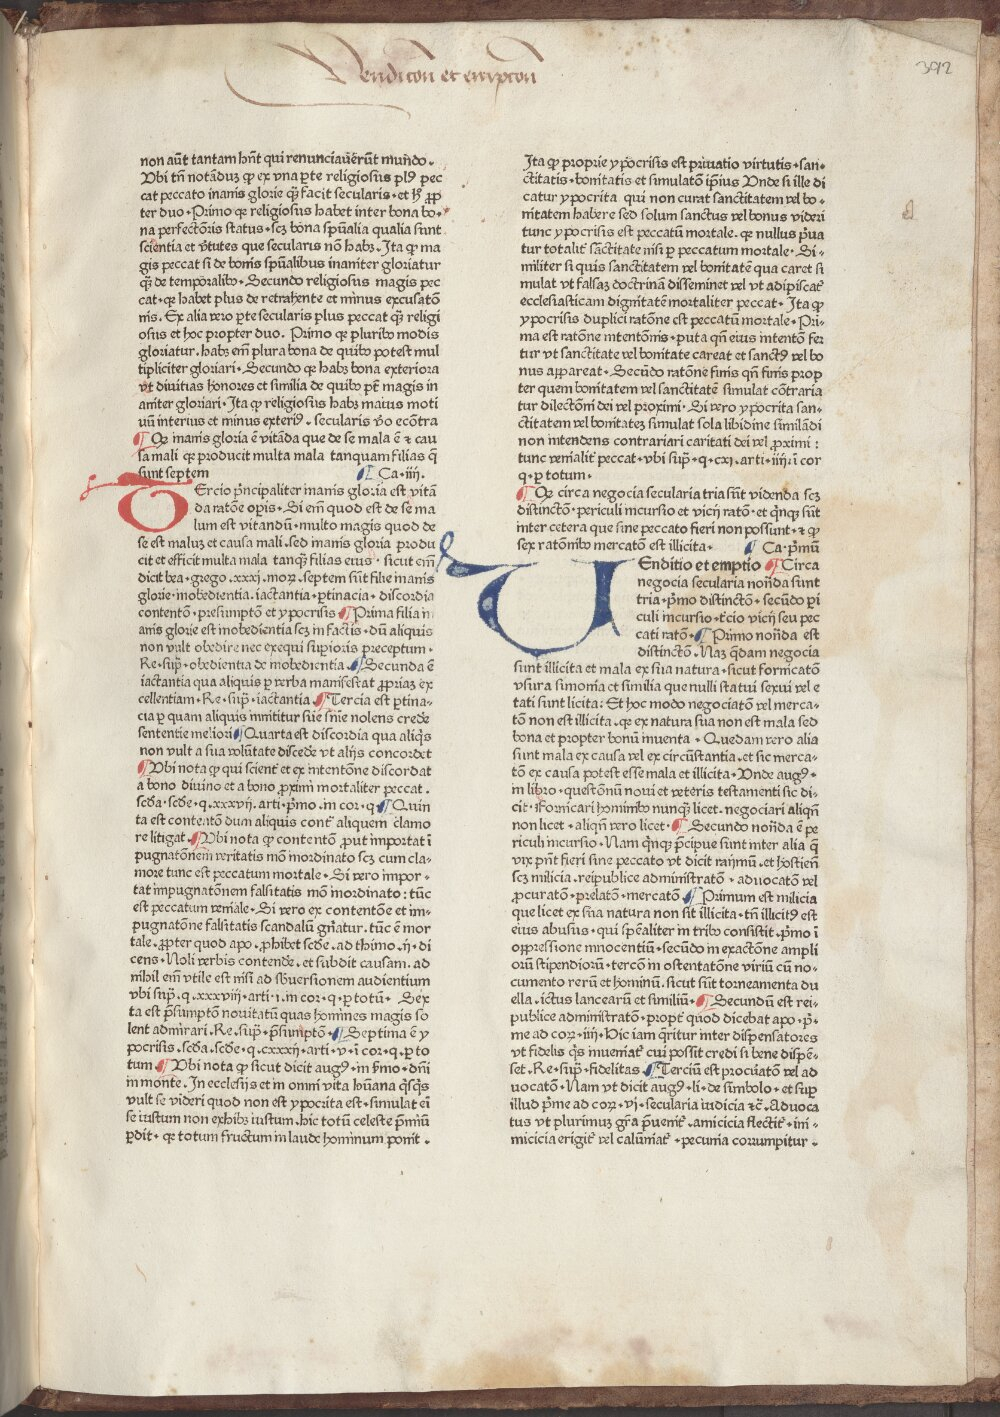 Vendicõn et empcõn
392
non aũt tantam hñt qui renunciavẽrũt mundo.
Vbi tñ notãduꝫ ꝙ ex vna p̲te religiosus plꝰ pec
cat peccato inanis glorie q̃ꝫ facit secularis. et h̃ ꝓp
ter duo. Primo qꝛ religiosus habet inter bona bo-
na perfectõris status. scꝫ bona spũalia qualia sunt
sciẽtia et v̾tutes que secularis nõ habꝫ. Ita ꝙ ma
gis peccat si de bonis spũalibus inaniter gloriatur
q̃ꝫ de temporalibꝰ. Secundo religiosus magis pec
cat. qꝛ habet plus de retrahente et minus excusatõ
nis. Ex alia vero p̲te secularis plus peccat q̃ꝫ religi
osus et hoc propter duo. Primo qꝛ pluribꝰ modis
gloriatur. habꝫ em̃ plura bona de quibꝰ potest mul
tipliciter gloriari. Secundo qꝛ habꝫ bona exteriora
vt divitias honores et similia de quibꝰ põt magis in
aniter gloriari. Ita ꝙ religiosus habꝫ maius moti
uũ interius et minus exteriꝰ. secularis v̾o ecõtra
¶ Qꝛ inanis gloria ẽ vitãda que de se mala ẽ ⁊ cau
sa mali qꝛ producit multa mala tanquam filias q̃
sunt septem ¶ Ca. iiij.
Tercio p̃ncipaliter inanis gloria est vitã
da ratõne op̲is. Si em̃ quod est de se ma
lum est vitandũ. multo magis quod de
se est maluꝫ et causa mali. sed inanis gloria produ
cit et efficit multa mala tanq̃ꝫ filias eius. sicut em̃
dicit bea. grego. xxxi. moꝝ. septem sũt filie inanis
glorie. inobedientia. iactantia. p̲tinacia. discordia
contentõ. presumptõ et ypocrisis ¶ Prima filia in
anis glorie est inobedientia scꝫ in factis. dũ aliquis
non vult obedire nec exequi sup̲ioris preceptum.
Re. sup̲. obedientia de inobedientia. ¶ Secunda ẽ
iactantia qua aliquis p̲ verba manifestat ꝓpriaꝫ ex
cellentiam. Re. sup̲. iactantia. ¶ Tercia est p̲tina-
cia p̲ quam aliquis innititur sue sñie nolens crede
sententie meliori ¶ Quarta est discordia qua aliq̃s
non vult a sua volũtate discede vt alijs concordet
¶ Vbi nota ꝙ qui scient̾ et ex intentõne discordat
a bono divino et a bono ꝓximi mortaliter peccat.
scd̃a. scd̃e. q. xxxvij. arti. pr̃mo. in cor. q. ¶ Quin
ta est contentõ dum aliquis cont̃ aliquem clamo
re litigat. ¶ Vbi nota ꝙ contentõ ꝓut importat ĩ
pugnatõnem veritatis mõ inordinato scꝫ cum cla-
more tunc est peccatum mortale. Si vero impor-
tat impugnatõnem falsitatis mõ inordinato: tũc
est peccatum veniale. Si vero ex contentõne et im-
pugnatõne falsitatis scandalũ gñatur. tũc ẽ mor
tale. ꝓpter quod apo. ꝓhibet scd̃e. ad thimo. ij. di
cens. Noli verbis contende. et subdit causam. ad
nihil em̃ vtile est nisi ad sb̾uersionem audientium
vbi sup̲. q. xxxviij. arti. i. in cor. q. p̲ totũ. Sex
ta est p̃sumptõ novitatũ quas homines magis so
lent admirari. Re. sup̲. p̃sumptõ. ¶ Septima ẽ y
pocrisis. scd̃a. scd̃e. q. cxxxij. arti. v. ĩ cor. q. p̲ to
tum ¶ Vbi nota ꝙ sicut dicit augꝰ. in s̾mo. dñi
in monte. In ecclesijs et in omni vita hũana q̃sq̃s
vult se videri quod non est ypocrita est. simulat eĩ
se iustum non exhibꝫ iustum. hic totũ celeste p̃miũ
p̲dit. qꝛ totum fructum in laude hominum ponit.
Ita ꝙ proprie ypocrisis est priuatio virtutis. san-
ctitatis. bonitatis et simulatõ ip̃ius Vnde si ille di
catur ypocrita qui non curat sanctitatem vel bo-
nitatem habere sed solum sanctus vel bonus videri
tunc ypocrisis est peccatũ mortale. qꝛ nullus p̃ua
tur totalit̾ sãctitate nisi p̲ peccatum mortale. Si-
militer si quis sanctitatem vel bonitatẽ qua caret si
mulat vt falsaꝫ doctrinã disseminet vel vt adipiscat̾
ecclesiasticam dignitatẽ mortaliter peccat. Ita ꝙ
ypocrisis duplici ratõne est peccatũ mortale. Pri-
ma est ratõne intentõnis. puta qñ eius intentõ fer
tur vt sanctitate vel bonitate careat et sanctꝰ vel bo
nus appareat. Secũdo ratõne finis qñ finis prop
ter quem bonitatem vel sanctitatẽ simulat cõtraria
tur dilectõni dei vel proximi. Si vero ypocrita san-
ctitatem vel bonitateꝫ simulat sola libidine similãdi
non intendens contrariari caritati dei vel ꝓximi:
tunc venialit̾ peccat. vbi sup̲. q. cxi. arti. iiij. ĩ cor
q. p̲ totum.
¶ Qꝛ circa negocia secularia tria sũt videnda scꝫ
distinctõ. periculi incursio et vicij ratõ. et q̃nqꝫ sũt
inter cetera que sine peccato fieri non possunt. ⁊ ꝙ
sex ratõnibꝰ mercatõ est illicita. ¶ Ca. p̃mũ
VEnditio et emptio ¶ Circa
negocia secularia noñda sunt
tria. p̃mo distinctõ. secũdo p̲i
culi incursio. t̾cio vicij seu pec
cati ratõ. ¶ Primo noñda est
distinctõ. Naꝫ q̃dam negocia
sunt illicita et mala ex sua natura. sicut fornicatõ
vsura simonia et similia que nulli statui sexui vel e
tati sunt licita. Et hoc modo negociatõ vel merca-
tõ non est illicita. qꝛ ex natura sua non est mala sed
bona et propter bonũ inuenta. Quedam vero alia
sunt mala ex causa vel ex circũstantia. et sic merca-
tõ ex causa potest esse mala et illicita. Vnde augꝰ.
in libro. questõnũ noui et veteris testamenti sic di-
cit. Fornicari hominibꝰ nunq̃ꝫ licet. negociari aliqñ
non licet. aliqñ vero licet. ¶ Secundo noñda ẽ pe
riculi incursio. Nam q̃nqꝫ p̃cipue sunt inter alia q̃
vix pñt fieri sine peccato vt dicit raymũ. et hostieñ
scꝫ milicia. reipublice administratõ. advocatõ vel
ꝓcuratõ. prelatõ. mercatõ ¶ Primum est milicia
que licet ex sua natura non sit illicita. tñ illicitꝰ est
eius abusus. qui sp̃ealiter in tribꝰ consistit. p̃mo ĩ
oppressione innocentiũ. secũdo in exactõne ampli
orũ stipendiorũ. tercõ in ostentatõne viriũ cũ no-
cumento rerũ et hominũ. sicut sũt torneamenta du
ella. ictus lancearũ et similiũ. ¶ Secundũ est rei-
publice administratõ. propt̾ quod dicebat apo. p̃-
me ad coꝝ. iiij. Hic iam q̃ritur inter dispensatores
vt fidelis q̃s inueniat̾ cui possit credi si bene dispẽ-
set. Re. sup̲. fidelitas. ¶ Terciũ est procuratõ vel ad
uocatõ. Nam vt dicit augꝰ. li. de simbolo. et sup̲
illud p̃me ad coꝝ. vj. secularia iudicia ⁊c̃. aduoca
tus vt plurimuꝫ gr̃a p̃uenit̾. amicicia flectit̾. ini-
micicia erigit̾ vel calũniat̾. pecunia corrumpitur.